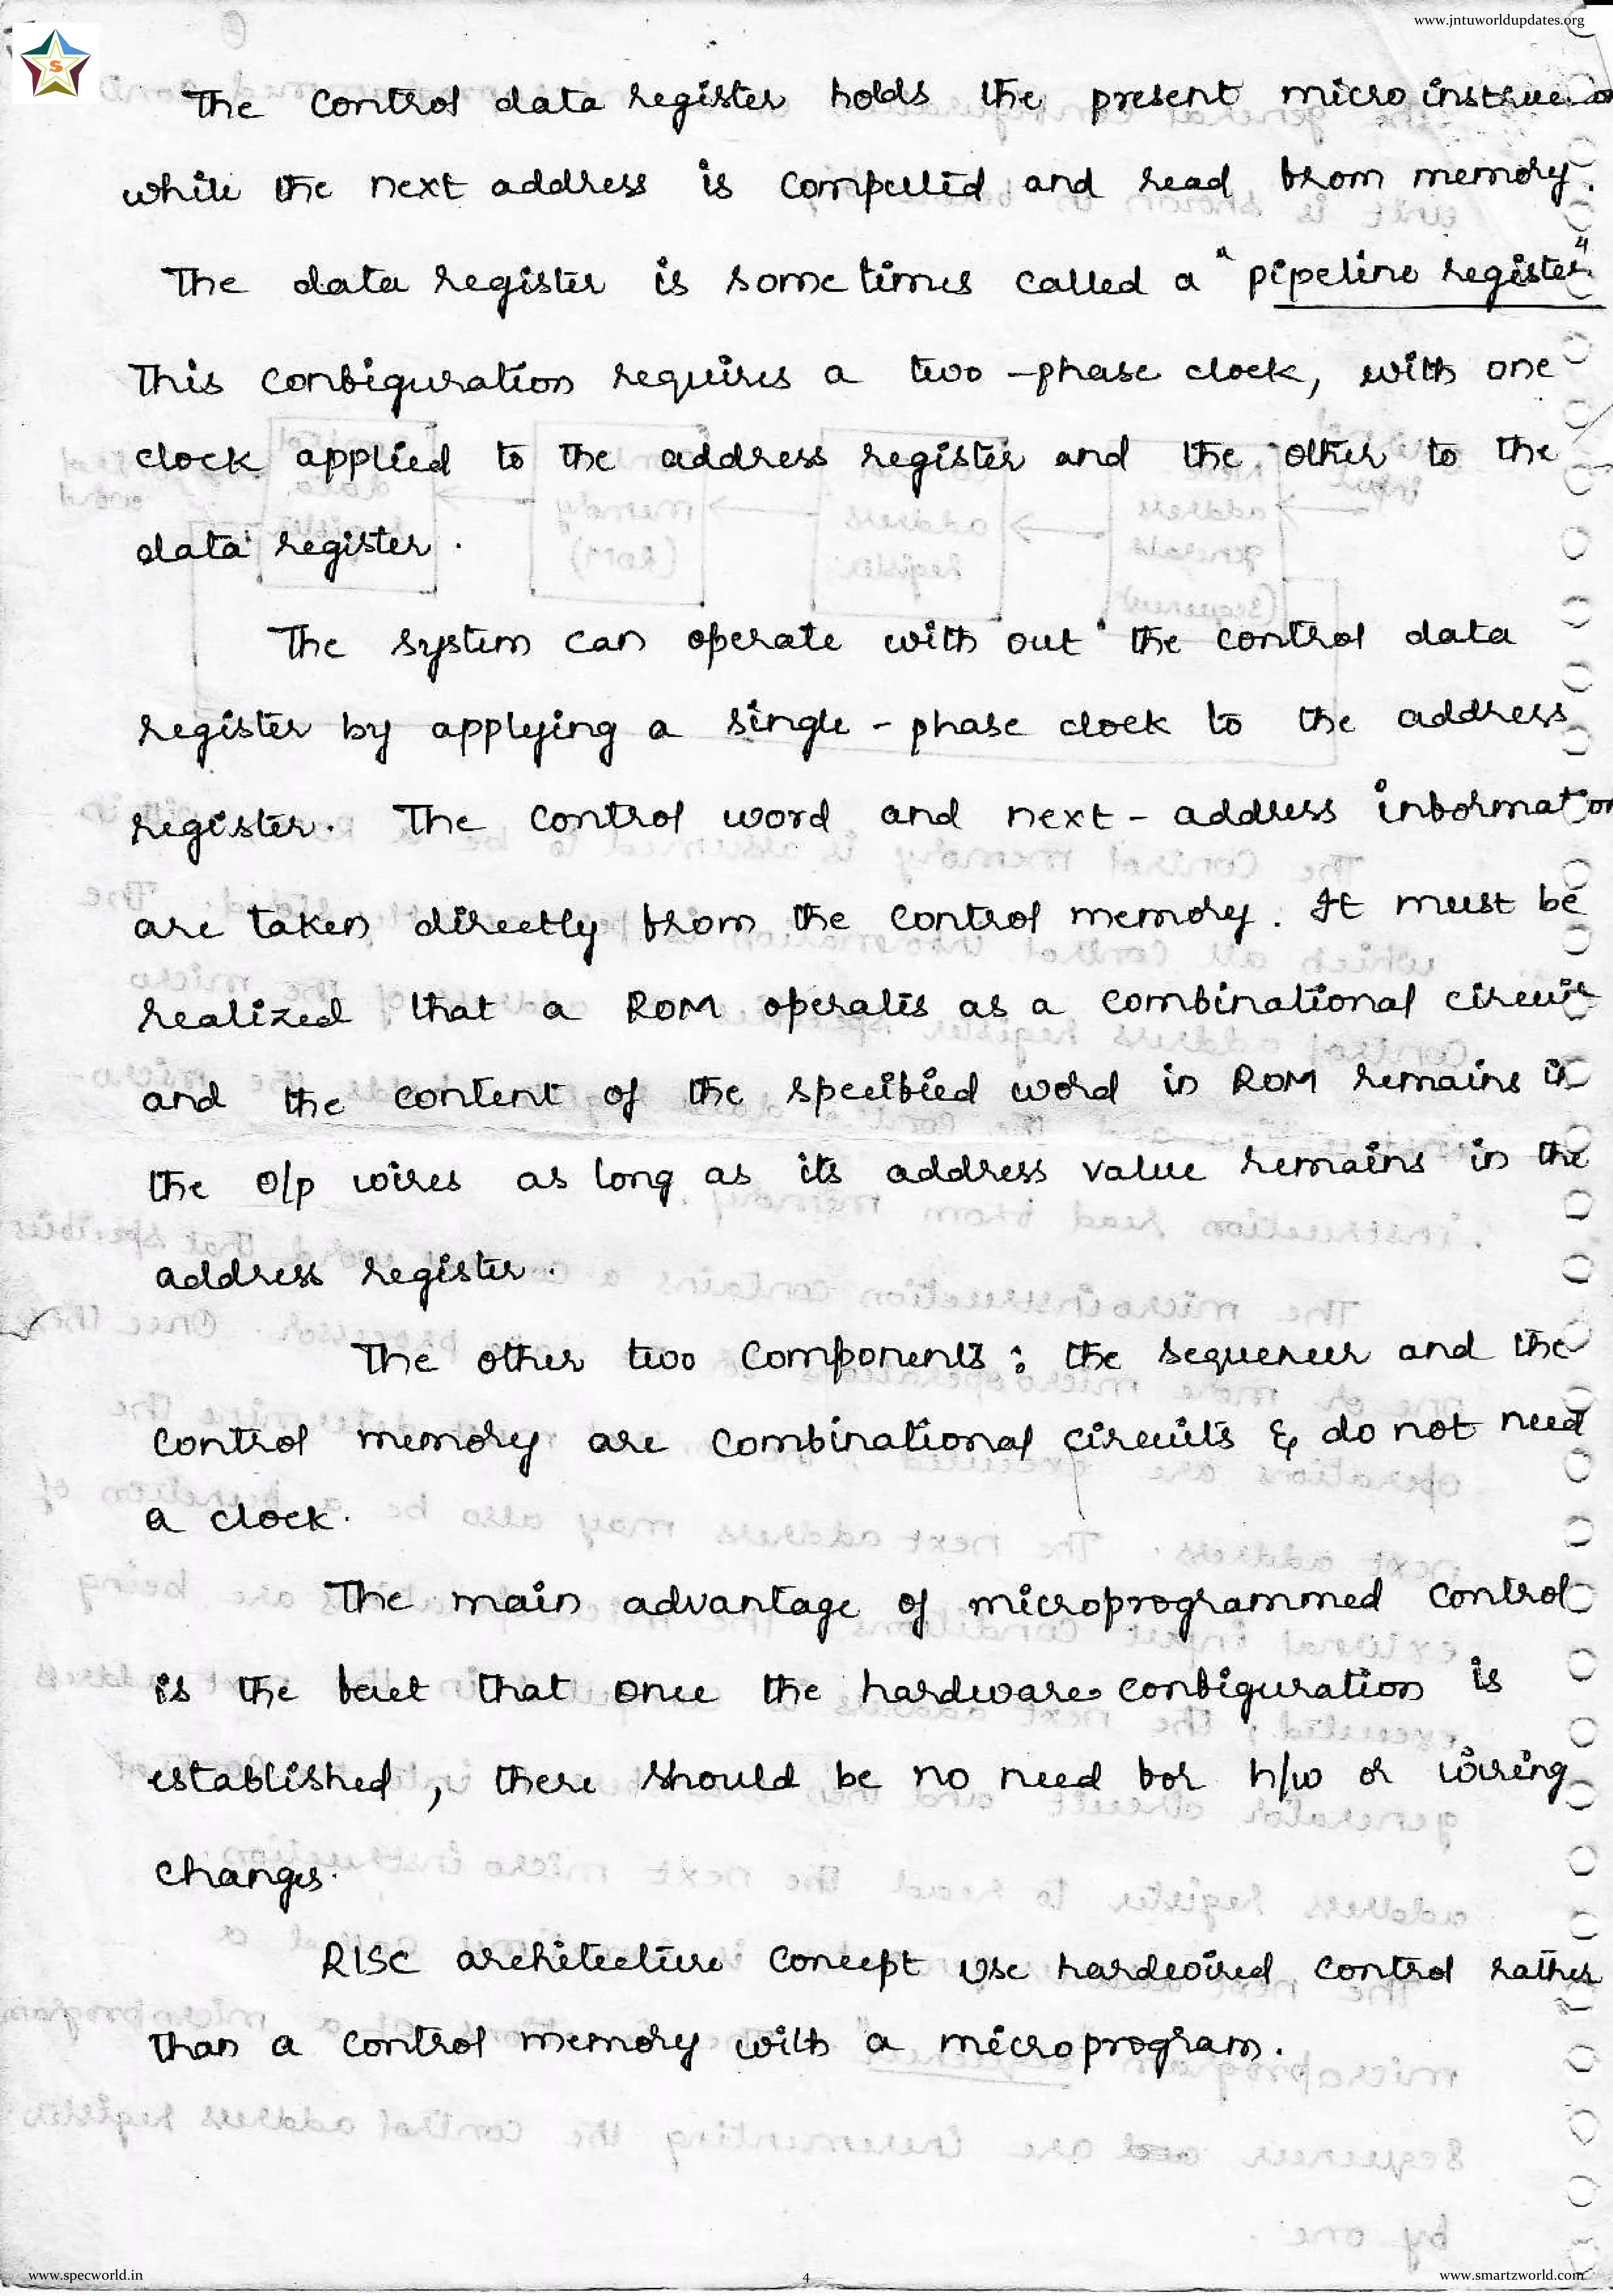 www.jntuworldupdates.org
S
The control data register holds the present micro instruction
while the next address is computed and read from memory.
The data register is some times called a "pipeline register"
This configuration requires a two-phase clock, with one
clock applied to the address register and the other to the
data register.
The system can operate with out the control data
register by applying a single-phase clock to the address
register. The control word and next-address information
are taken directly from the control memory. It must be
realized that a ROM operates as a combinational circuit
and the content of the specified word in ROM remains in
the o/p wires as long as its address value remains in the
address register.
The other two components: the sequencer and the
control memory are combinational circuits & do not need
a clock.
The main advantage of microprogrammed control
is the fact that once the hardware configuration is
established, there should be no need for h/w or wiring
changes.
RISC architecture concept use hardwired control rather
than a control memory with a microprogram.
www.specworld.in
4
www.smartzworld.com